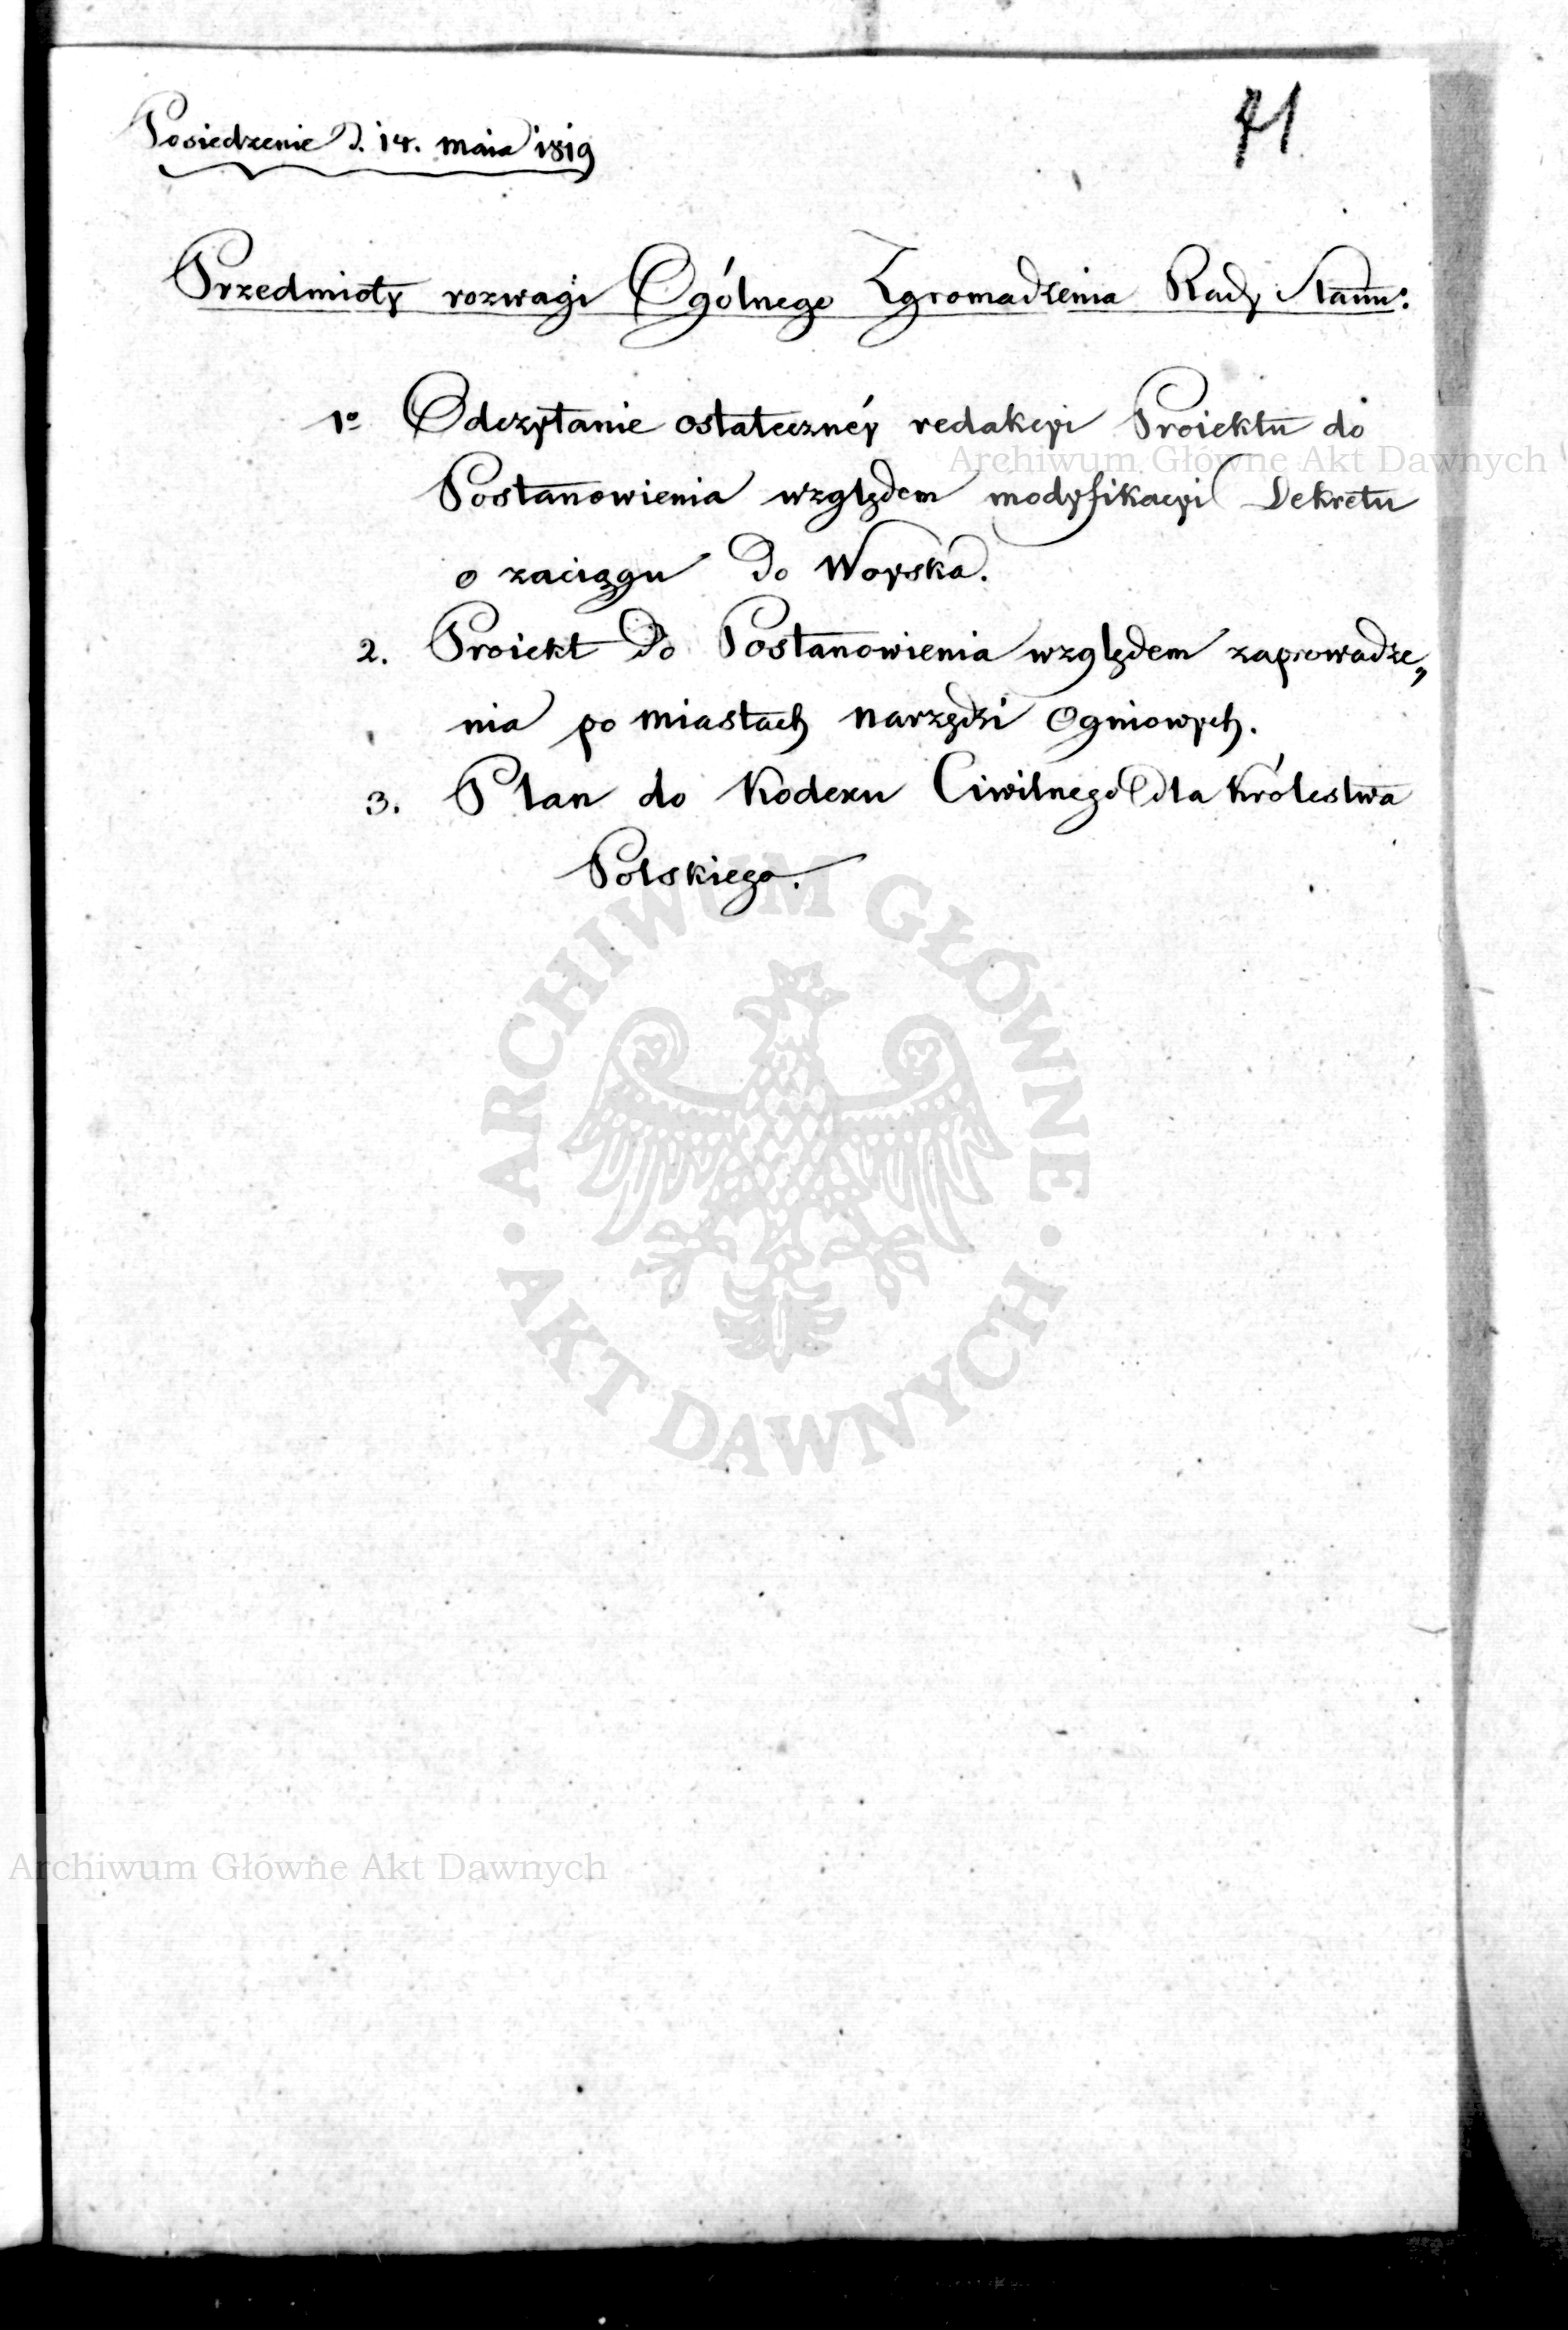 Posiedzenie D. 14. maia 1819
71
Przedmioty rozwagi Ogólnego Zgromadzenia Rady Stanu:
1º Odczytanie ostatecznéy redakcyi Proiektu do
Archiwum Główne Akt Dawnych
Postanowienia względem modyfikacyi Dekretu
o zaciągu do Woyska.
2. Proiekt do Postanowienia względem zaprowadze„
nia po miastach narzędzi Ogniowych.
3. Plan do Kodexu Ciwilnego dla Królestwa
Polskiego.
ARCHIWUM GŁÓWNE
AKT DAWNYCH
Archiwum Główne Akt Dawnych